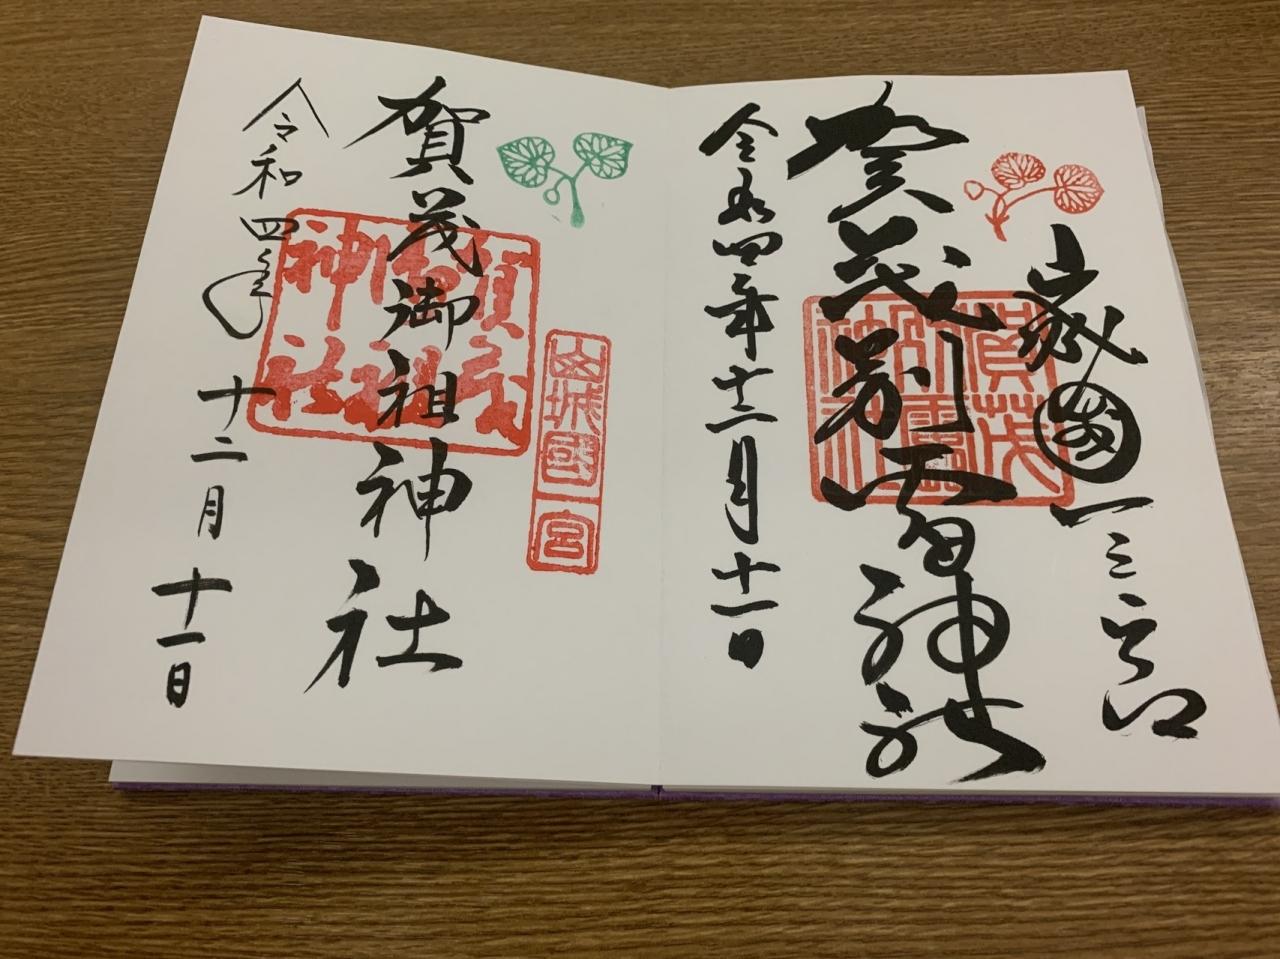 山城國一之宮
賀茂別雷神社
賀茂別雷神社
令和四年十二月十一日
山城國一宮
賀茂御祖神社
賀茂御祖神社
令和四年
十二月
十一日